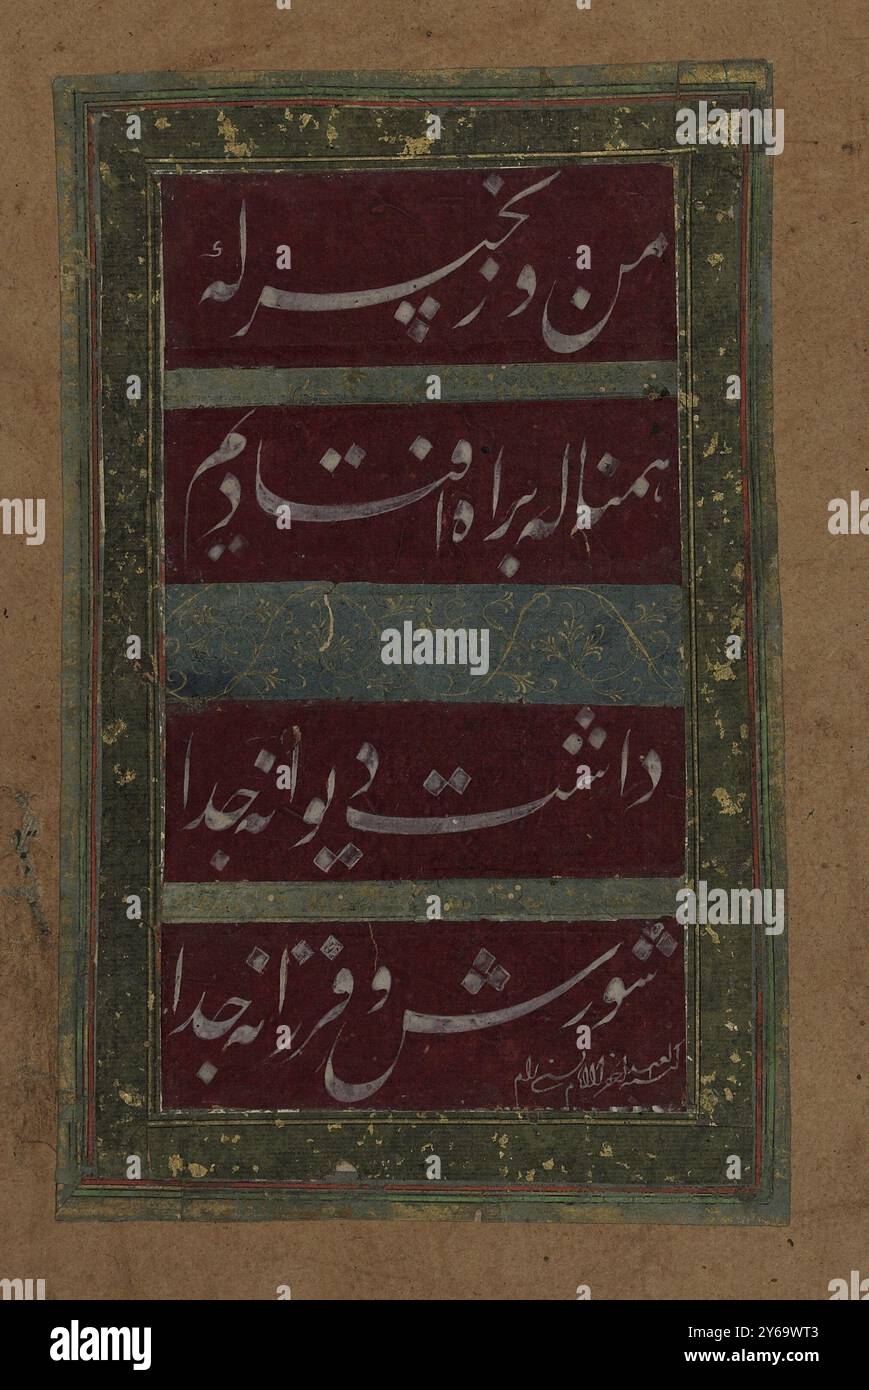 من و زنجیر که
همناله براه افتادیم
داشت دیوانه جدا
شورش و فرزانه جدا
alamy
alamy
alamy
alamy
Image ID: 2Y69WT3
www.alamy.com